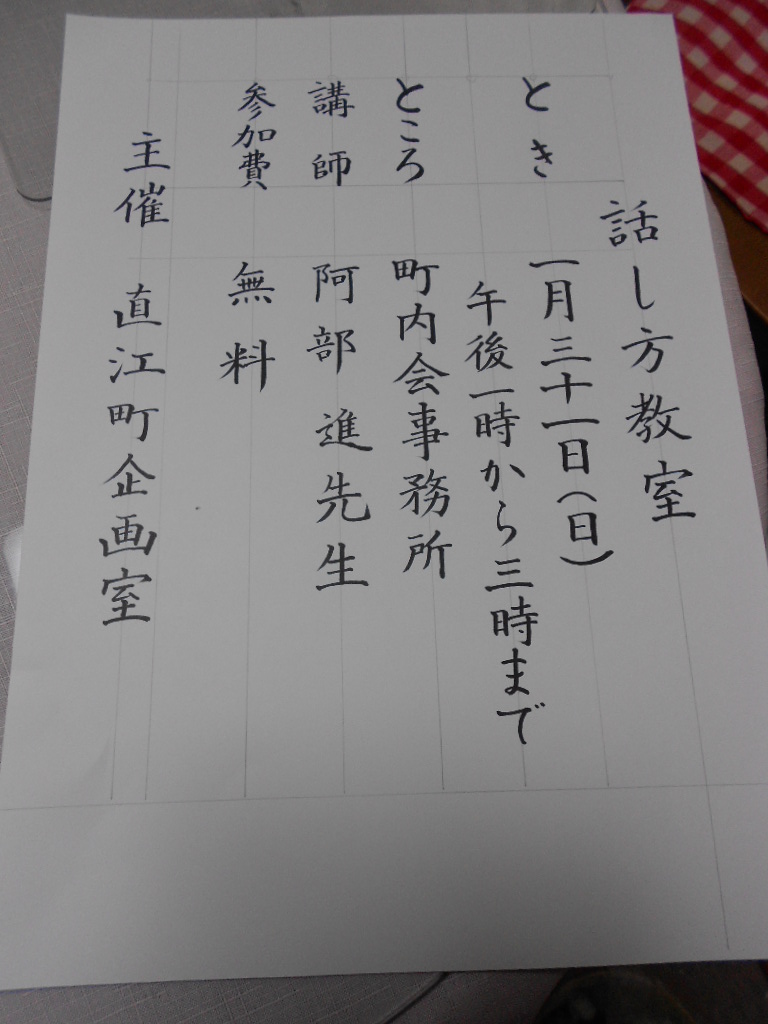 話し方教室
とき 一月三十一日(日)
午後一時から三時まで
ところ 町内会事務所
講師 阿部進先生
参加費 無料
主催 直江町企画室